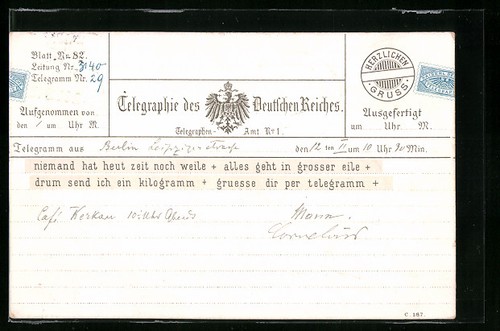 Blatt Nr. 82.
Leitung Nr. 3140
Telegramm Nr. 29
HERZLICHEN
GRUSS
Telegraphie des Deutschen Reiches.
Aufgenommen von
den 1 um Uhr M.
Telegraphen- Amt Nr 1.
Ausgefertigt
um Uhr M.
Telegramm aus Berlin Leipzigerstrasse den 12 ten II um 10 Uhr Min
niemand hat heut zeit noch weile + alles geht in grosser eile +
drum send ich ein kilogramm + gruesse dir per telegramm +
Café
Cornelius
C. 187.